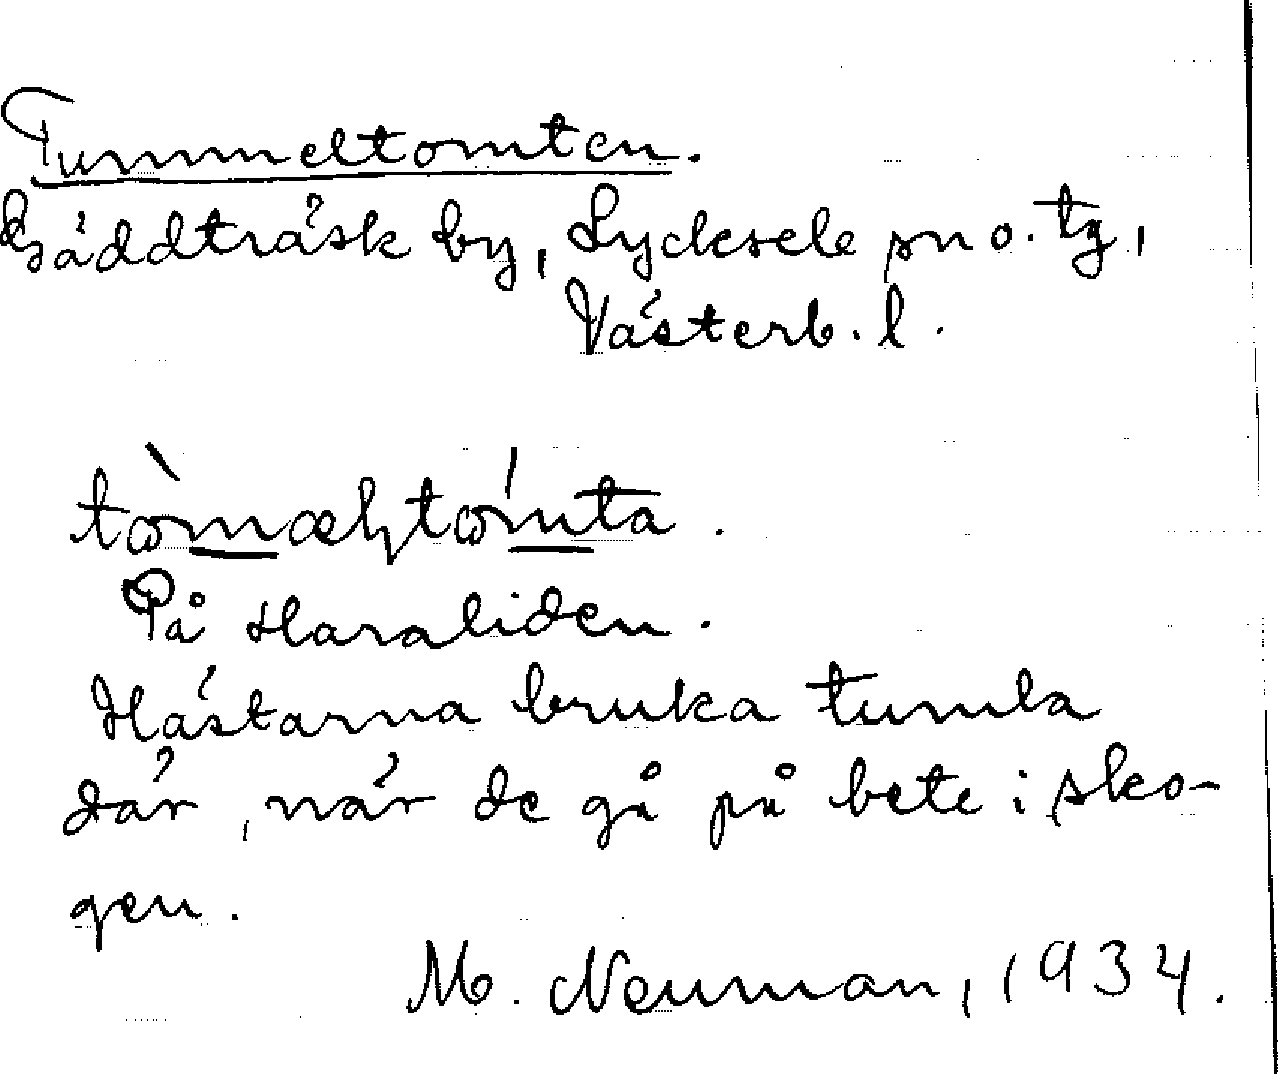 Tummeltomten.
Gäddträsk by, Lycksele sn o. tg,
Västerb. l.
tòmæltómta.
På Haraliden.
Hästarna bruka tumla
där, när de gå på bete i sko-
gen.
M. Neuman, 1934.